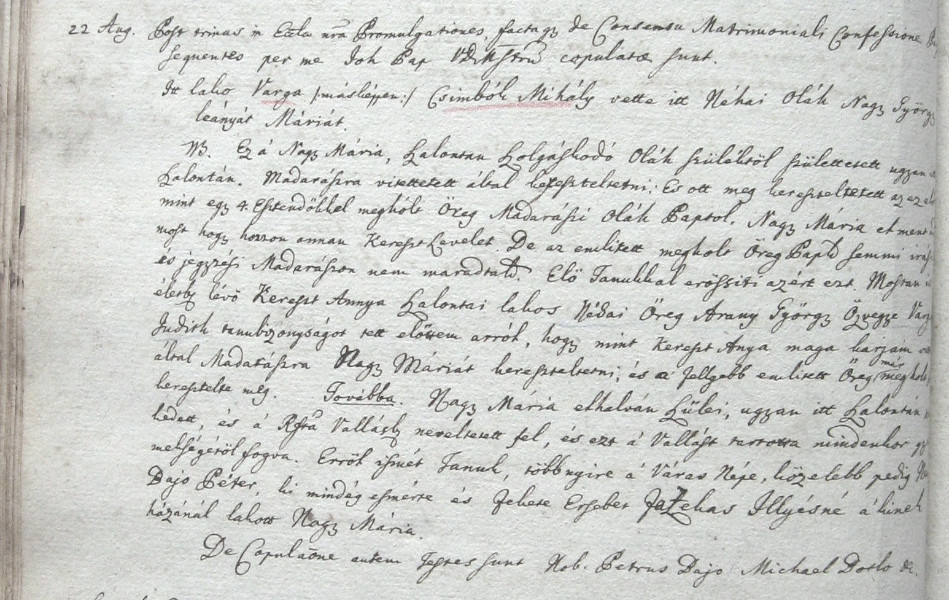 22 Aug. Post trinas in Eccla nrã Promulgationes, factaqz de Consensu Matrimoniali Confessione
sequentes per me Joh Pap copulatæ sunt.
Itt lako Varga /:másképpen:/ Csimbók Mihály vette itt Néhai Oláh Nagy György
leányát Máriát.
NB. Ez á Nagy Mária, Szalontán Szolgáskodó Oláh szüléktöl születtetett ugyan
Szalontán. Madarászra vitettetett által kereszteltetni: És ott meg kereszteltetett az
mint egy 4. Esztendökkel megholt Öreg Madarászi Oláh Paptol. Nagy Mária el ment
most hogy hozzon onnan Kereszt Levelet. De az emlitett megholt Öreg Papt semmi
és jegyzési Madarászon nem maradtak. Elö Tanukkal erössiti azért ezt. Mostan
életbe lévö Kereszt Annya Szalontai lakos Néhai Öreg Arany György Özvegye
Judith tanubizonyságot tett elöttem arról, hogy mint Kereszt Anya maga karjain
által Madarászra Nagy Máriát kereszteltetni, és a fellyebb emlitett Öreg már megholt
keresztelte meg. Továbba. Nagy Mária elhalván Szülei, ugyan itt Szalontán
kedett, és á Rfta Vallásb neveltetett fel, és ezt á Vallást tartotta mindenkor
mekségétöl fogva. Erröl ismét Tanuk, többnyire á Város Népe, közelebb pedig
Dajo Péter, ki mindég esmérte és Fekete Ersebet Illyésné á kinek
házánál lakott Nagy Mária.
De Copulaõne autem Testes sunt Nob. Petrus Dajo Michael